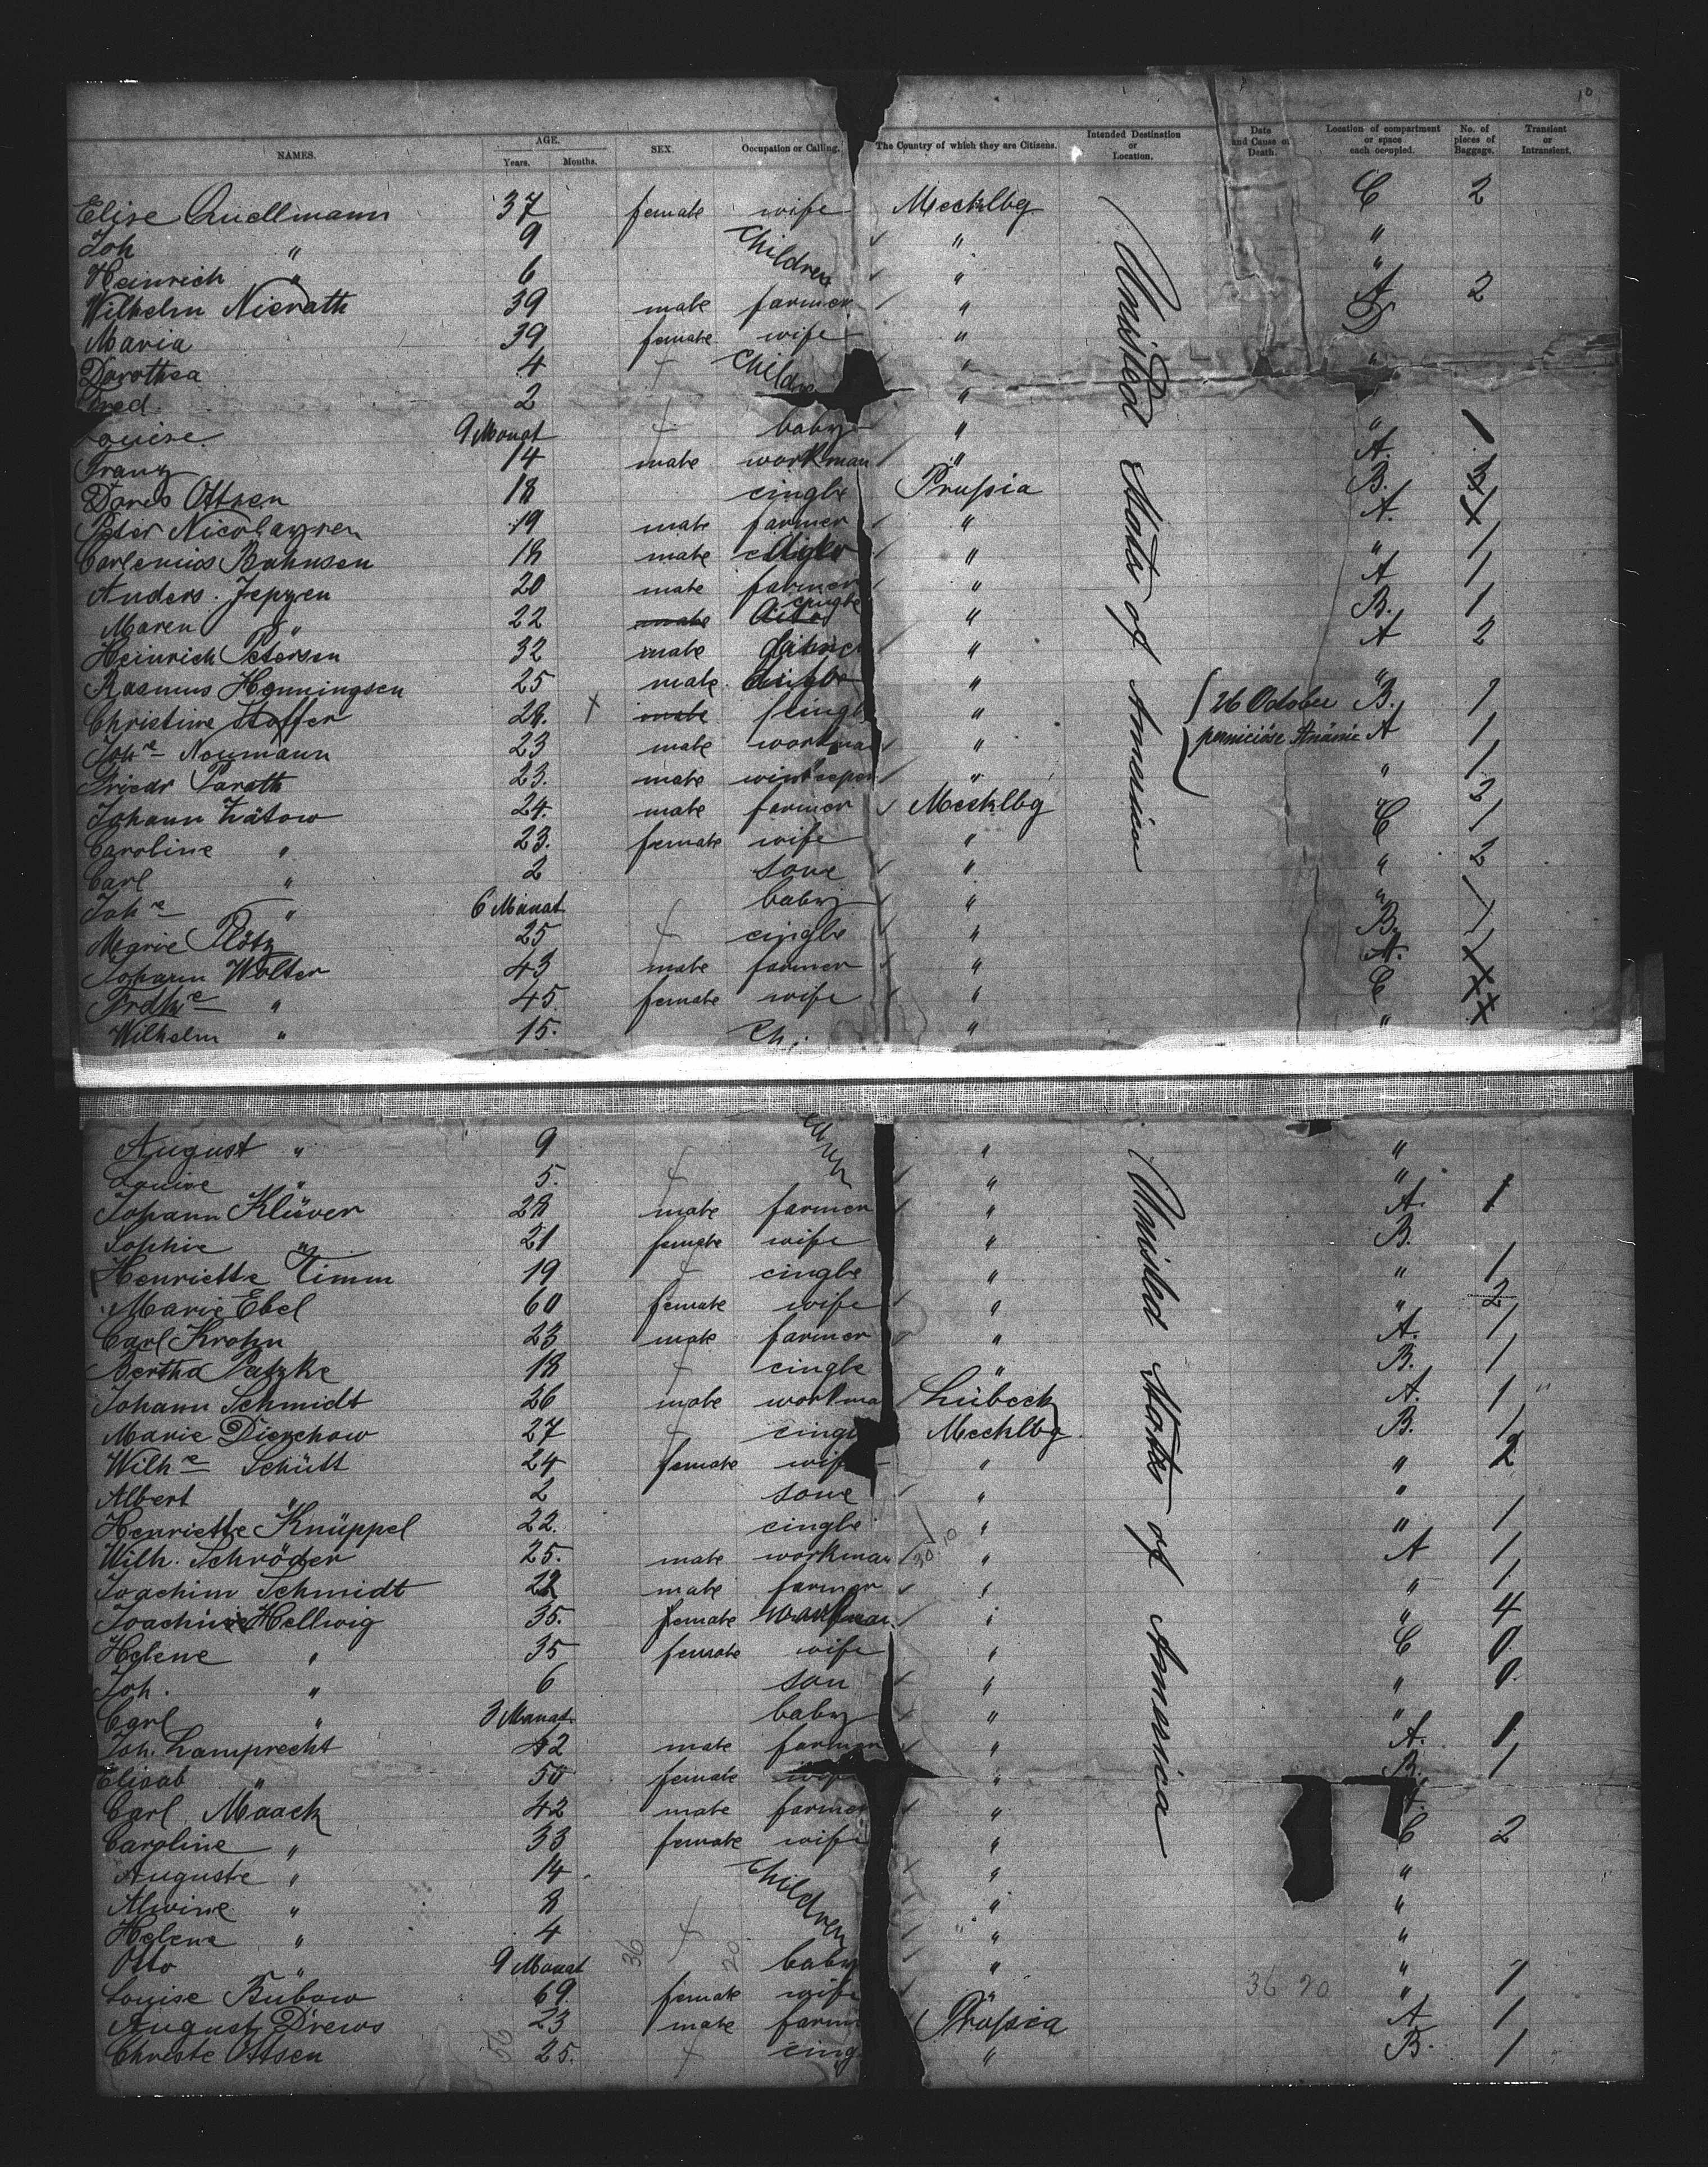 10
NAMES. AGE. Years. Months. SEX. Occupation or Calling. The Country of which they are Citizens. Intended Destination or Location. Date and Cause of Death. Location of compartment or space each occupied. No. of pieces of Baggage. Transient or Intransient.
Elise Quellmann 37 female wife Mecklbg C 2
Joh " 9 Children " "
Heinrich " 6 " "
Wilhelm Nierath 39 male farmer " A 2
Maria 39 female wife " D
Dorothea 4 Childr " "
2 "
Louise 9 Monat baby " " 1
Franz 14 male workman " A.
Dores Ottsen 18 cingle Prußia B. 3
Peter Nicolaysen 19 male farmer " A.
Carlenius Bahnsen 18 male " " 1
Anders. Jepsen 20 male farmer " A 1
Maren " 22 male cingle " B. 1
Heinrich Petersen 32 male " A 2
Rasmus Henningsen 25 male " "
Christine Stoffer 28. male cingl " 26 October B. 1
Joh.e Neumann 23 male workma " perniciöse Anämie A 1
Parath 23. male " " 1
Johann Lätow 24. male farmer Mecklbg " 2
Caroline " 23. female wife " C 1
Carl " 2 sone " " 2
Joh.e " 6 Monat baby " "
Marie Plötz 25 cingle " B.
Johann Wolter 43 male farmer " A.
Frdke " 45. female wife " C
Wilhelm " 15. Ch " "
United States of America
August " 9 " "
Louise " 5. " "
Johann Klüver 28 male farmer " A. 1
Sophie " 21 female wife " B.
Henriette Timm 19 cingle " " 1
Marie Ebel 60 female wife " " 2
Carl Krohn 23 male farmer " A. 1
Bertha Patzke 18 cingle " B. 1
Johann Schmidt 26 male workma Lübeck A. 1 "
Marie Dierchow 27 cingl Mecklbg. B. 1
Wilh.e Schütt 24 female wife " " 2
Albert " 2 sone " "
Henriette Knüppel 22. cingle " " 1
Wilh. Schröder 25. male workman 30.10 " A 1
Joachim Schmidt 22 male farmer " " 1
Joachim Hellwig 35. female workman " " 4
Helene " 35 female wife " C 0
Joh. " 6 son " " 0
Carl " 3 Monat baby " "
Joh. Lamprecht 42 male farmer " A. 1
Elisab " 50 female wife " B. 1
Carl Maack 42 male farmer " A.
Caroline " 33 female wife " C 2
Auguste " 14 Children " "
Alwine " 8 " "
Helene " 4 " "
Otto " 9 Monat 36 20 baby " "
Louise Bübow 69. female wife " 36 20 " 1
August Drews 23 male farm Prußia A. 1
Christe Ottsen 56 25. cing " B. 1
United States of America